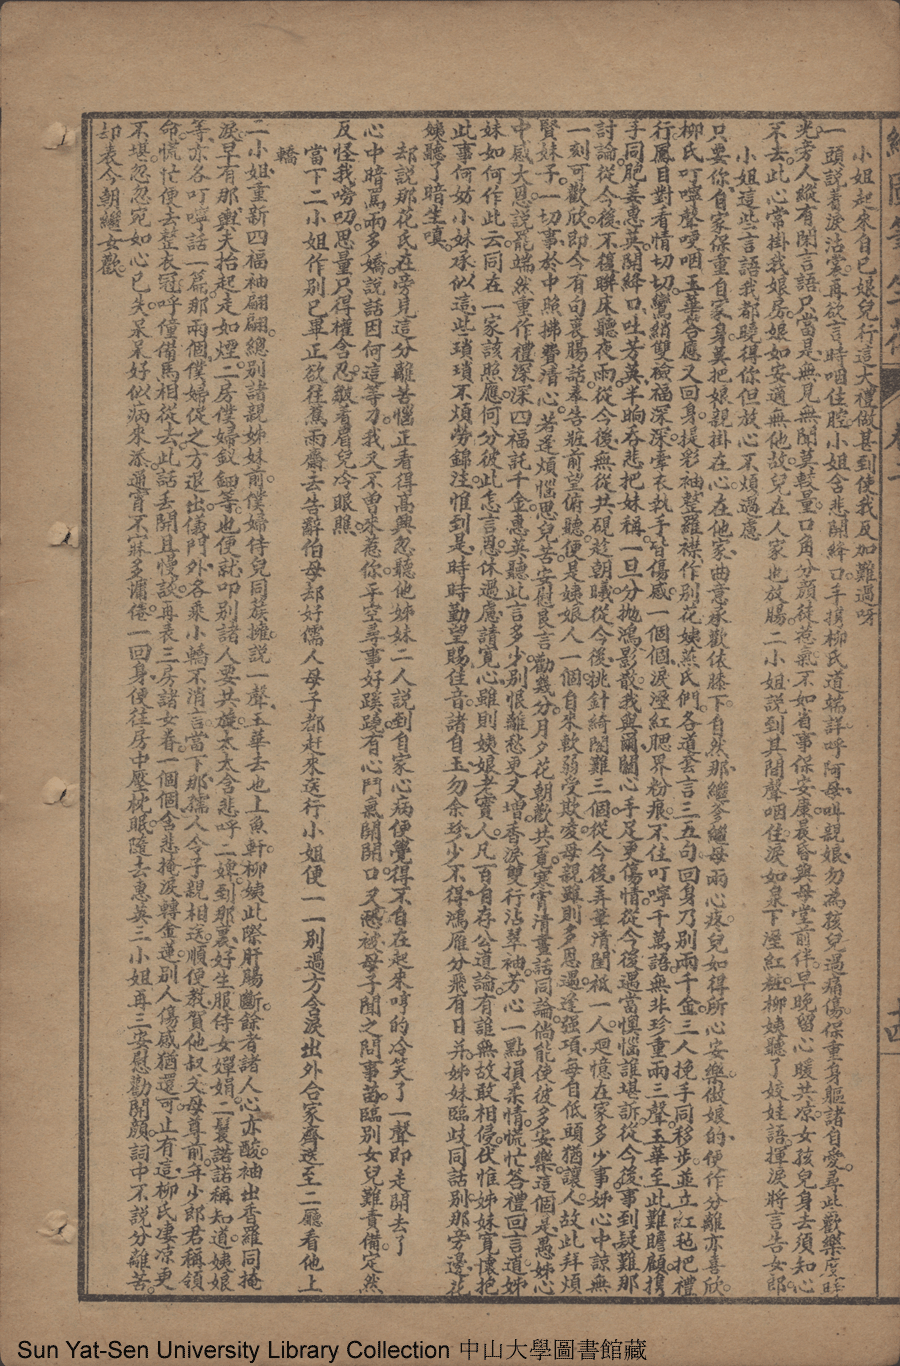 繪圖筆生花 卷十
小姐起來自己娘兒行這大禮做甚到使我反加難過呀
一頭說着淚沾裳再欲言時咽住腔小姐含悲開絳口手携柳氏道端詳呼阿母叫親娘勿為孩兒過痛傷保重身軀諸自愛尋些歡樂度時
光旁人縱有閑言語只當是無見無聞莫較量口角分顏徒惹氣不如省事保安康晨昏與母堂前伴早晚留心暖共凉女孩兒身去須知心
不去此心常掛我娘房娘如安適無他故兒在人家也放腸二小姐說到其間聲咽住淚如泉下溼紅粧柳姨聽了姣娃語揮淚將言告女郎
小姐這些言語我都曉得你但放心不煩過慮
只要你自家保重自家身莫把娘親掛在心在他家曲意承歡依膝下自然那繼爹繼母兩心疼兒如得所心安樂做娘的便作分離亦喜欣
柳氏叮嚀聲哽咽玉華答應又回身提彩袖整羅襟作別花姨燕氏們各道套言三五句回身乃別兩千金三人挽手同移步並立紅毡把禮
行屬目對看情切切鸞綃雙襝福深深牽衣執手皆傷感一個個淚溼紅腮界粉痕不住叮嚀千萬語無非珍重兩三聲玉華至此難瞻顧携
手同胞姜惠英開絳口吐芳英半晌吞悲把妹稱一旦分拋鴻影散我與爾關心手足更傷情從今後過當懊惱誰堪訴從今後事到疑難那
討論從今後不復聯床聽夜雨從今後無從共硯趁朝曦從今後挑針綺閣難三個從今後弄筆清閨祗一人迴憶在家多少事姊心中諒無
一刻可歡欣即今有句衷腸話奉告粧前望俯聽便是姨娘人一個自來軟弱受欺凌母親雖則多恩遇逢强項每自低頭猶讓人故此拜煩
賢妹子一切事於中照拂費清心若逢煩惱思兒苦安慰良言勸幾分月夕花朝歡共夏寒宵清晝話同論倘能使彼多安樂這個是愚姊心
中感大恩說罷端然重作禮深深四福託千金惠英聽此言多少別恨離愁更又增香淚雙行沾翠袖芳心一點損柔情慌忙答禮回言道姊
妹如何作此云同在一家該照應何分彼此怎言恩休過慮請寬心雖則姨娘老實人凡百自存公道論有誰無故敢相侵伏惟姊妹寬懷抱
此事何妨小妹承似這些瑣瑣不煩勞錦注惟到是時時勤望賜佳音諸自玉勿余珍少不得鴻雁分飛有日并姊妹臨歧同話別那旁邊花
姨聽了暗生嗔
却說那花氏在旁見這分離苦惱正看得高興忽聽他姊妹二人說到自家心病便覺得不自在起來哼的冷笑了一聲即走開去了
心中暗罵兩多嬌說話因何這等刁我又不曾來惹你平空尋事好蹊蹺有心鬥氣開開口又恐被母子聞之問事苗臨別女兒難責備定然
反怪我嘮叨思量只得權含忍斂着眉兒冷眼照
當下二小姐作別已畢正欲往蕉雨齋去告辭伯母却好儒人母子都赶來送行小姐便一一別過方含淚出外合家齊送至二廳看他上
轎
二小姐重新四福袖翩翩總別諸親姊妹前僕婦侍兒同蔟擁說一聲玉華去也上魚軒柳姨此際肝腸斷餘者諸人心亦酸袖出香羅同掩
淚早有那輿夫抬起走如煙二房僕婦釵鈿等也便就叩別諸人要共旋太太含悲呼二婢到那裏好生服侍女嬋娟二鬟諾諾稱知道姨娘
等亦各叮嚀話一篇那兩個僕婦從之方退出儀門外各乘小轎不消言當下那孺人令子親相送順便教賀他叔父母尊前年少郎君稱領
命慌忙便去整衣冠呼僮備馬相從去此話丟開且慢談再表三房諸女眷一個個含悲掩淚轉金蓮別人傷感猶還可止有這柳氏凄凉更
不堪忽忽宛如心已失呆呆好似病來添通宵不寐多慵倦一回身便往房中壓枕眠隨去惠英三小姐再三安慰勸開顏詞中不說分離苦
却表今朝繼女歡
Sun Yat-Sen University Library Collection 中山大學圖書館藏